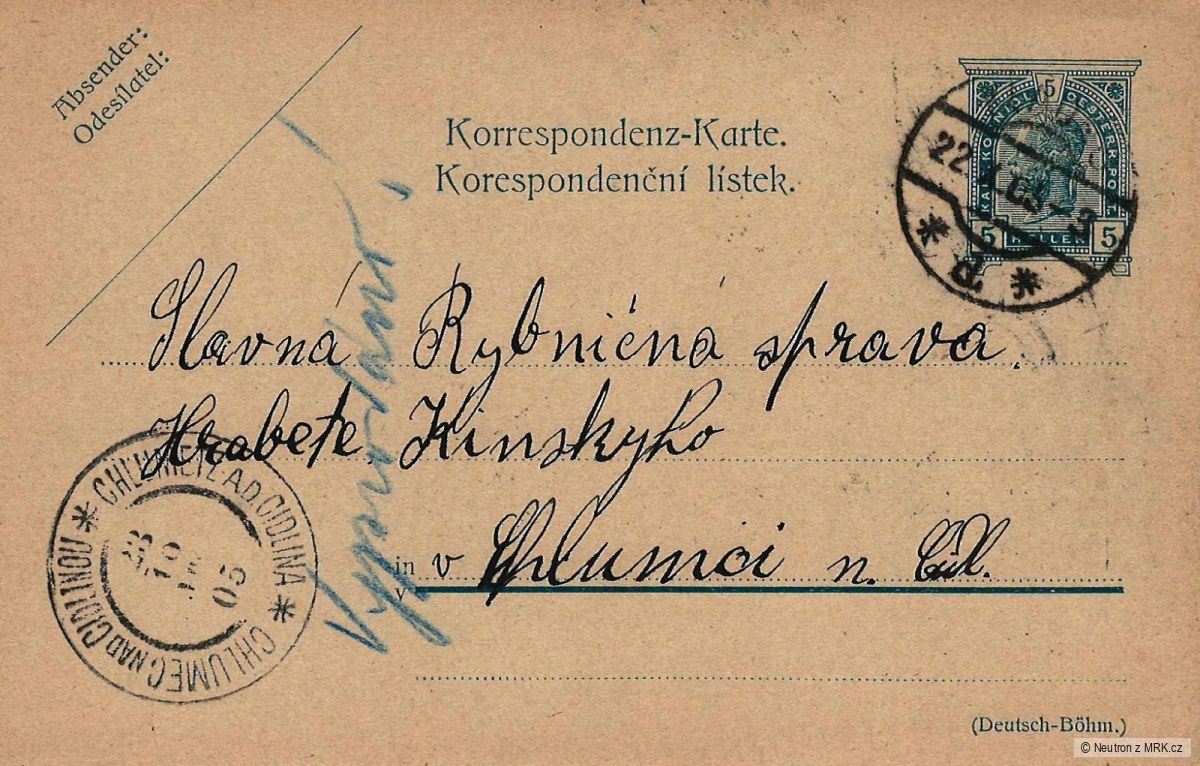 Absender:
Odesílatel:
Korrespondenz-Karte.
Korespondenční lístek.
KAIS. KÖNIGL. OESTERR. POST.
5
5 HELLER 5
22 X 05 - 3
Slavná Rybničná sprava
Hraběte Kinskyho
in v Chlumci n. Cidl.
v
Vyprodáno,
CHLUMETZ A.D. CIDLINA
CHLUMEC NAD CIDLINOU
23
10
05
(Deutsch-Böhm.)
© Neutron z MRK.cz